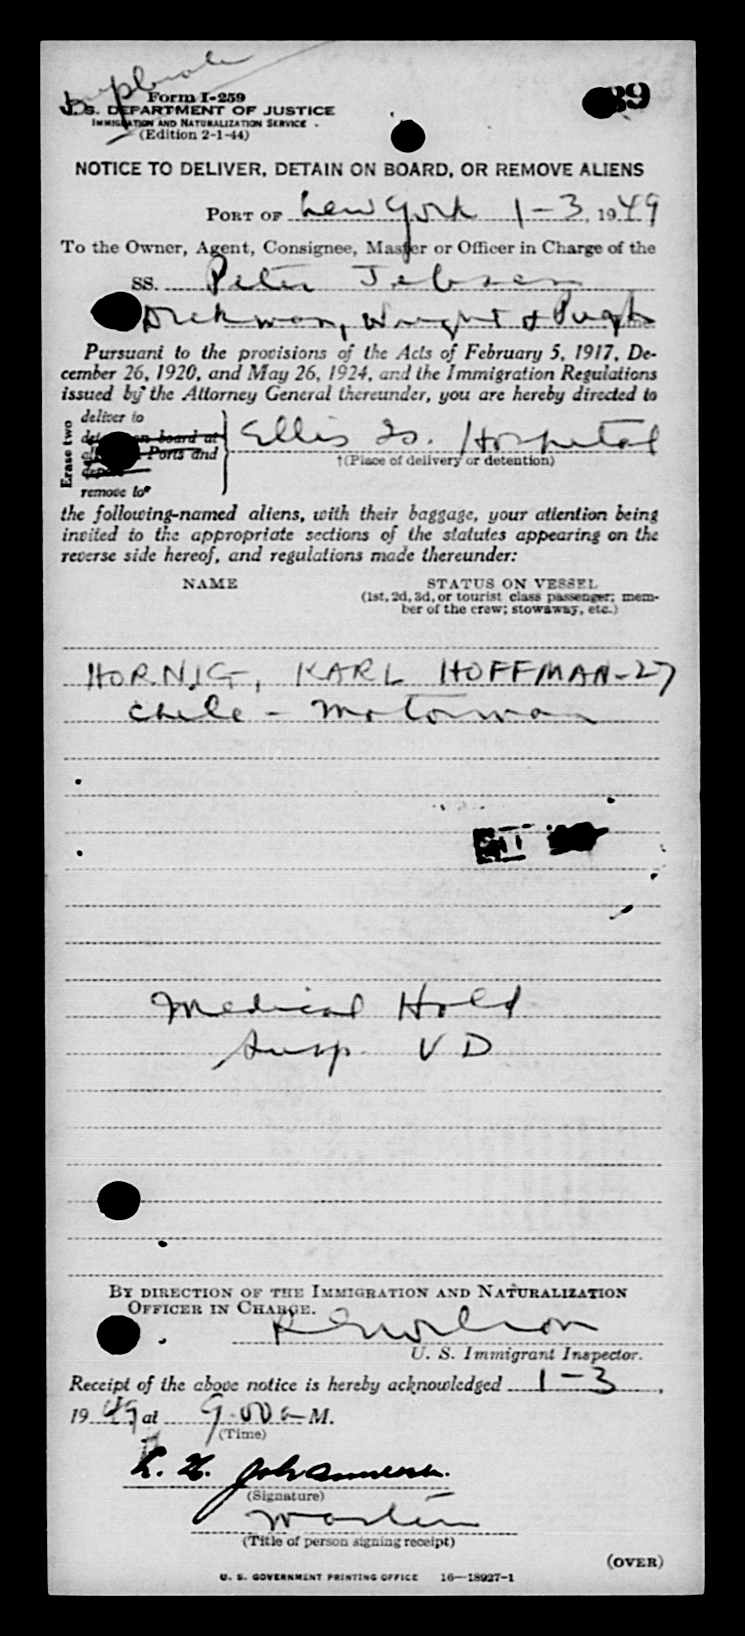 Duplicate
Form I-259
U. S. DEPARTMENT OF JUSTICE
IMMIGRATION AND NATURALIZATION SERVICE
(Edition 2-1-44)
39
NOTICE TO DELIVER, DETAIN ON BOARD, OR REMOVE ALIENS
PORT OF New York 1-3, 1949
To the Owner, Agent, Consignee, Master or Officer in Charge of the
SS. Peter Jebsen
Dickman, Wright & Pugh
Pursuant to the provisions of the Acts of February 5, 1917, De-
cember 26, 1920, and May 26, 1924, and the Immigration Regulations
issued by the Attorney General thereunder, you are hereby directed to
Erase two
deliver to
on board at
Ports and
remove to*
Ellis Is. Hospital
†(Place of delivery or detention)
the following-named aliens, with their baggage, your attention being
invited to the appropriate sections of the statutes appearing on the
reverse side hereof, and regulations made thereunder:
NAME STATUS ON VESSEL
(1st, 2d, 3d, or tourist class passenger; mem-
ber of the crew; stowaway, etc.)
HORNIG, KARL HOFFMAN-27
Chile - Motorman
Medical Hold
Susp. VD
BY DIRECTION OF THE IMMIGRATION AND NATURALIZATION
OFFICER IN CHARGE.
Wilson
U. S. Immigrant Inspector.
Receipt of the above notice is hereby acknowledged 1-3,
1949 at 9.00 a M.
(Time)
(Signature)
Master
(Title of person signing receipt)
(OVER)
U. S. GOVERNMENT PRINTING OFFICE 16—18927-1